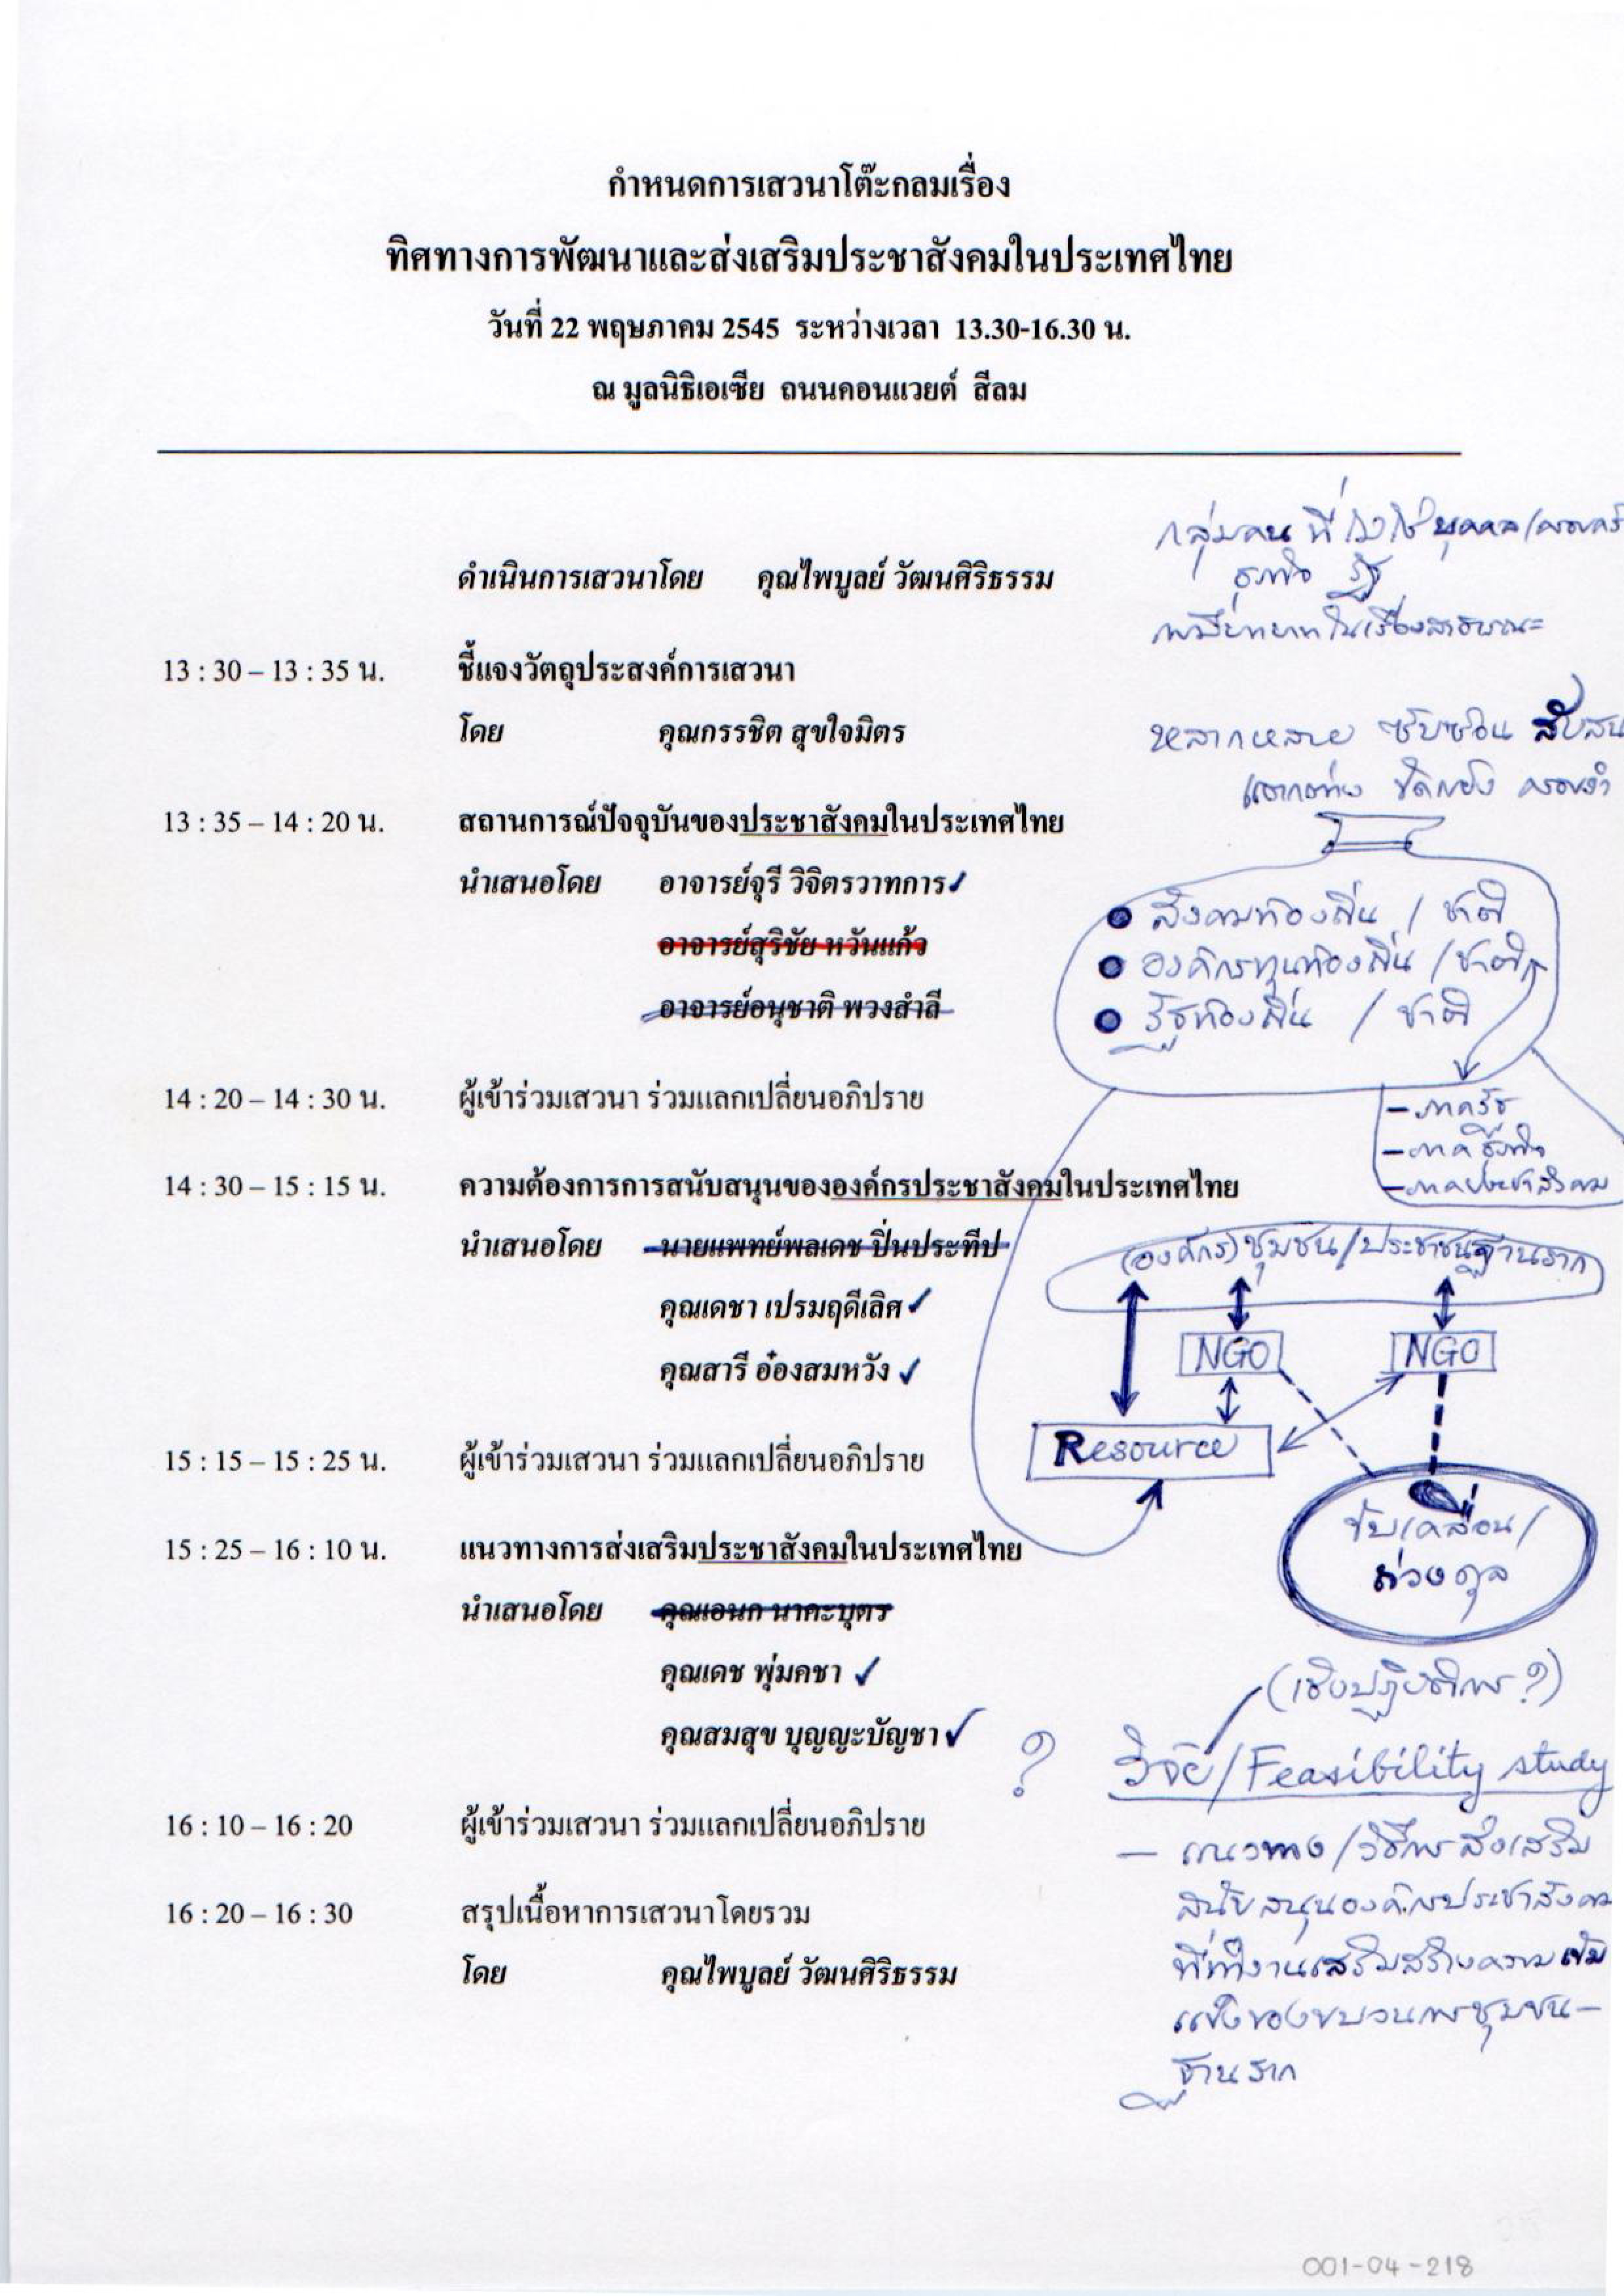 กำหนดการเสวนาโต๊ะกลมเรื่อง
ทิศทางการพัฒนาและส่งเสริมประชาสังคมในประเทศไทย
วันที่ 22 พฤษภาคม 2545 ระหว่างเวลา 13.30-16.30 น.
ณ มูลนิธิเอเซีย ถนนคอนแวยต์ สีลม
กลุ่มคน ที่ไม่ใช่ บุคคล/ครอบครัว
ธุรกิจ รัฐ
ดำเนินการเสวนาโดย คุณไพบูลย์ วัฒนศิริธรรม
ในเรื่องสาธารณะ
13 : 30 – 13 : 35 น. ชี้แจงวัตถุประสงค์การเสวนา
โดย คุณกรรชิต สุขใจมิตร
หลากหลาย ซับซ้อน สับสน
แตกต่าง ขัดแย้ง ครอบงำ
13 : 35 – 14 : 20 น. สถานการณ์ปัจจุบันของประชาสังคมในประเทศไทย
นำเสนอโดย อาจารย์จุรี วิจิตรวาทการ ✓
อาจารย์สุริชัย หวันแก้ว
อาจารย์อนุชาติ พวงสำลี
● สังคมท้องถิ่น / ชาติ
● องค์กรทุนท้องถิ่น / ชาติ
● รัฐท้องถิ่น / ชาติ
14 : 20 – 14 : 30 น. ผู้เข้าร่วมเสวนา ร่วมแลกเปลี่ยนอภิปราย
– ภาครัฐ
– ภาคธุรกิจ
– ภาคประชาสังคม
14 : 30 – 15 : 15 น. ความต้องการการสนับสนุนขององค์กรประชาสังคมในประเทศไทย
นำเสนอโดย นายแพทย์พลเดช ปิ่นประทีป
คุณเดชา เปรมฤดีเลิศ ✓
คุณสารี อ๋องสมหวัง ✓
(องค์กร) ชุมชน/ประชาชนฐานราก
NGO NGO
Resource
15 : 15 – 15 : 25 น. ผู้เข้าร่วมเสวนา ร่วมแลกเปลี่ยนอภิปราย
ขับเคลื่อน/
ถ่วงดุล
15 : 25 – 16 : 10 น. แนวทางการส่งเสริมประชาสังคมในประเทศไทย
นำเสนอโดย คุณเอนก นาคะบุตร
คุณเดช พุ่มคชา ✓
คุณสมสุข บุญญะบัญชา ✓
(เชิงปฏิบัติการ?)
? วิจัย/Feasibility study
16 : 10 – 16 : 20 ผู้เข้าร่วมเสวนา ร่วมแลกเปลี่ยนอภิปราย
– แนวทาง/วิธีการส่งเสริม
สนับสนุนองค์กรประชาสังคม
ที่ทำงานเสริมสร้างความเข้ม
แข็งของขบวนการชุมชน–
ฐานราก
16 : 20 – 16 : 30 สรุปเนื้อหาการเสวนาโดยรวม
โดย คุณไพบูลย์ วัฒนศิริธรรม
001-04-218